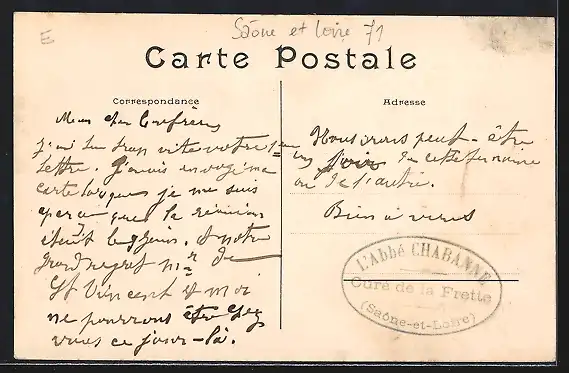 E
Saône et Loire 71
Carte Postale
Correspondance
Mon cher Confrère,
j'ai lu trop vite votre 1ère
lettre. J'avais envoyé ma
carte lorsque je me suis
aperçu que la réunion
était le 9 juin. A notre
grand regret Mr de
St Vincent & moi
ne pourrons être chez
vous ce jour-là.
Adresse
Nous irons peut-être
un jour de cette semaine
ou de l'autre.
Bien à vous
L'Abbé CHABANNE
Curé de la Frette
(Saône-et-Loire)